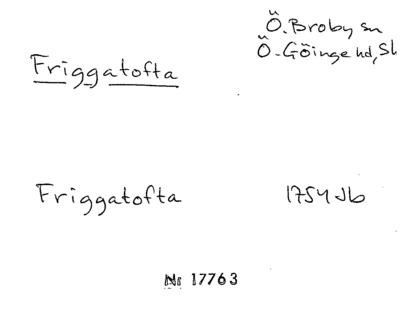 Ö. Broby sn
Ö. Göinge hd, Sk
Friggatofta
Friggatofta 1754 Jb
Nr 17763